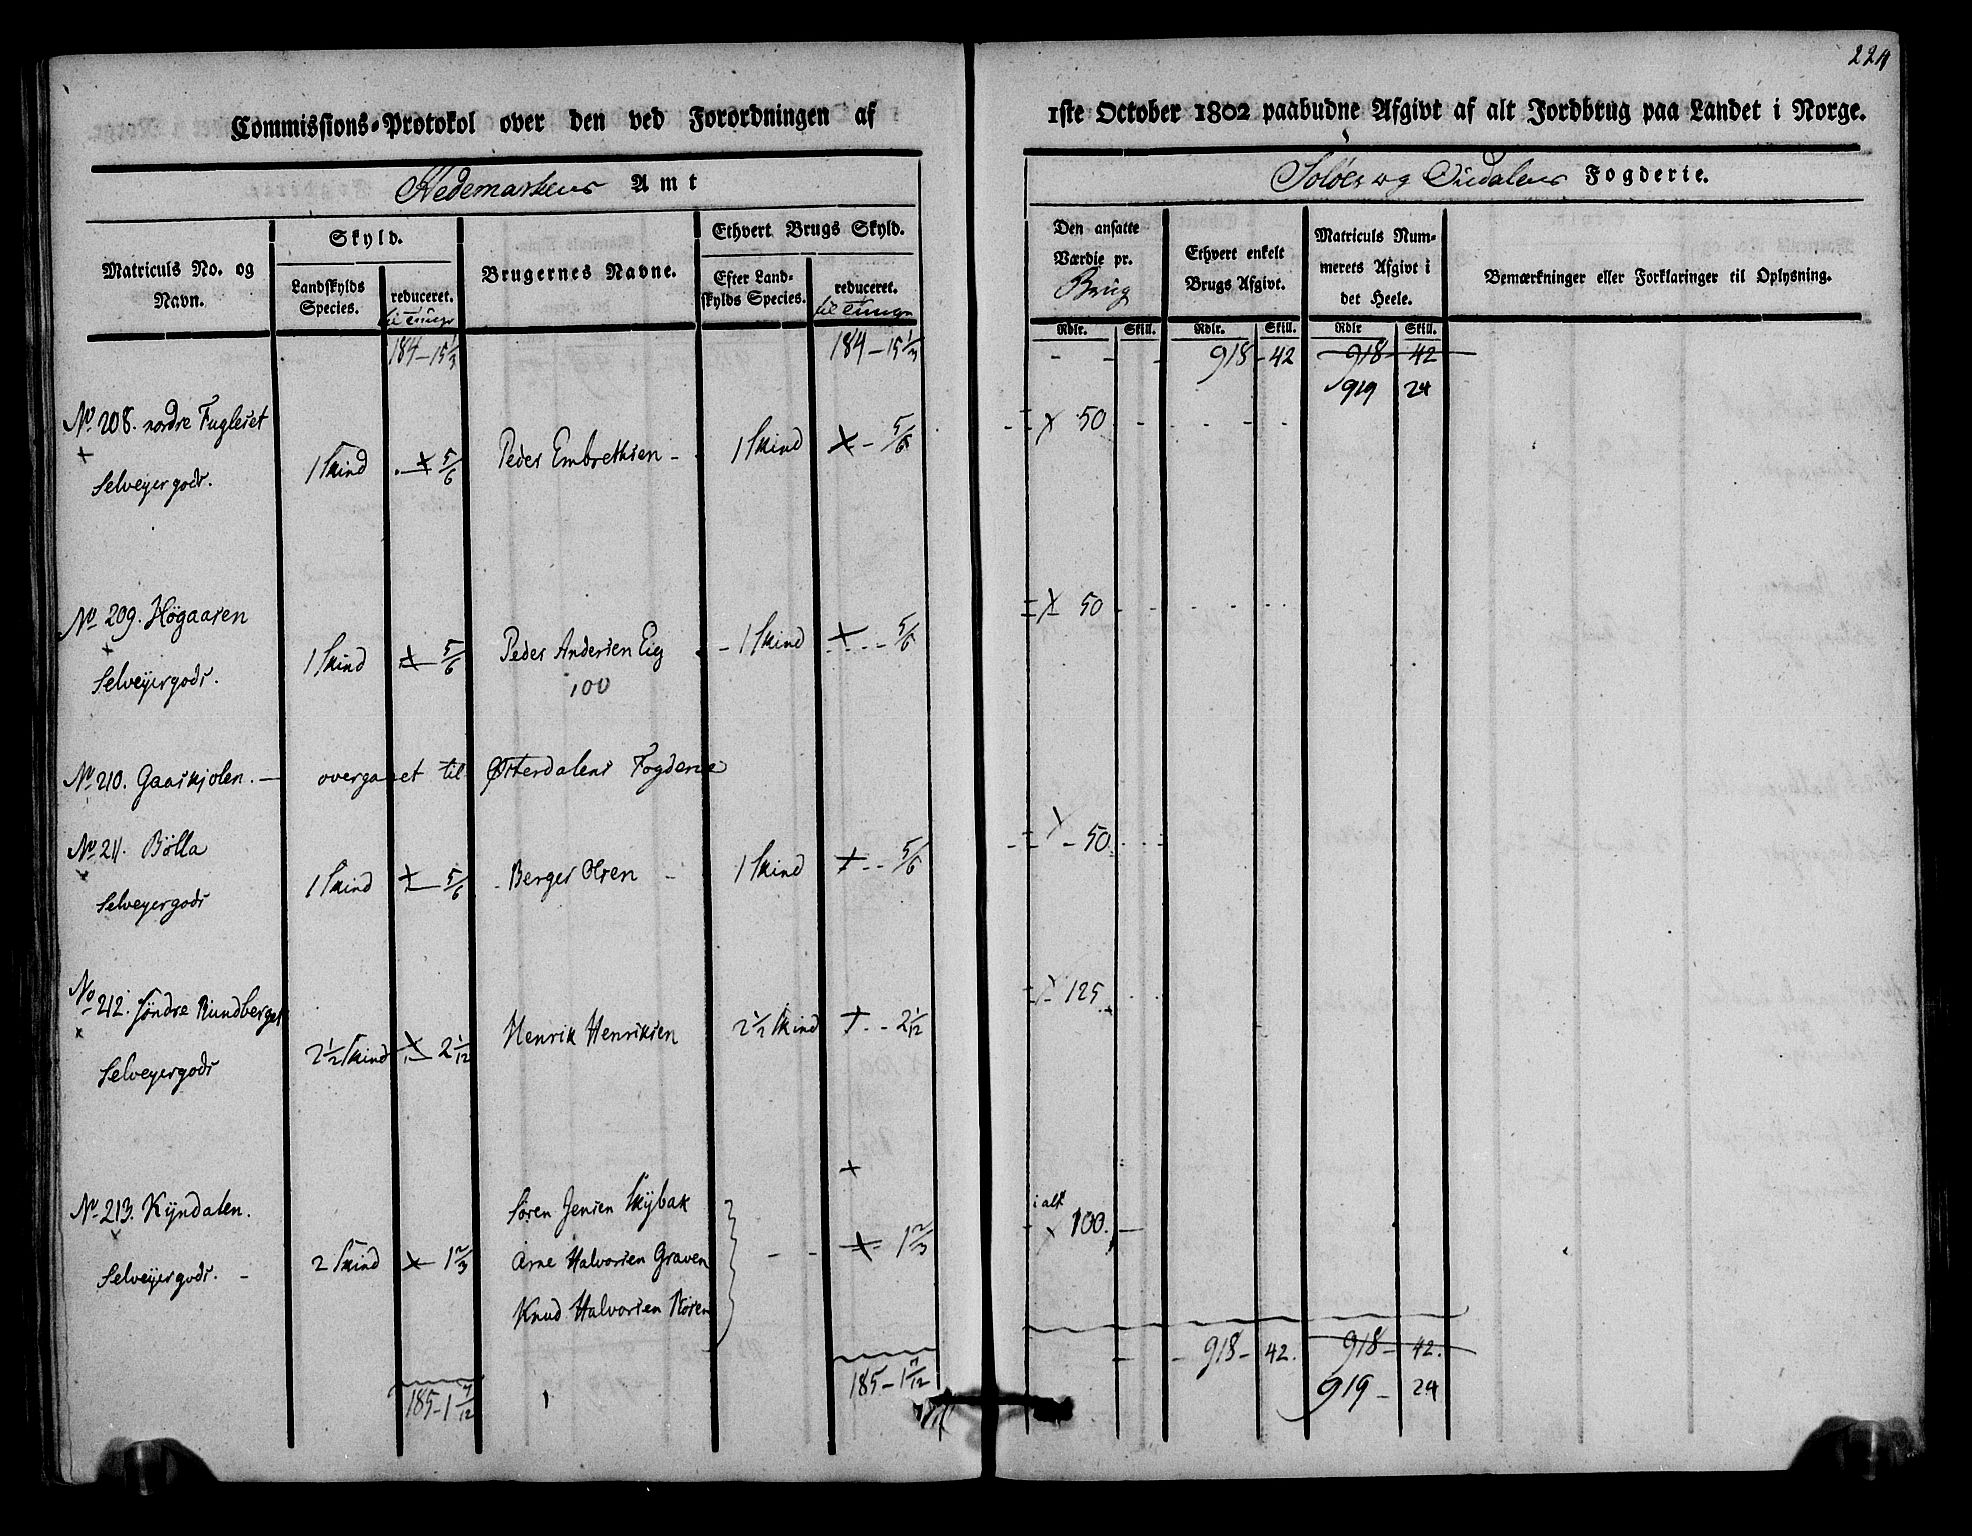 224
Commissions-Protokol over den ved Forordningen af 1ste October 1802 paabudne Afgivt af alt Jordbrug paa Landet i Norge.
Hedemarkens Amt
Soløer og Oudalens Fogderie.
Matriculs No. og Navn.
Skyld.
Landskylds Species.
reduceret.
til Tunge
Brugernes Navne.
Ethvert Brugs Skyld.
Efter Landskylds Species.
reduceret.
til Tunge
Den ansatte Værdie pr.
Brug
Ethvert enkelt Brugs Afgivt.
Matriculs Nummerets Afgivt i det Heele.
Bemærkninger eller Forklaringer til Oplysning.
Rdlr. Skill. Rdlr. Skill. Rdlr Skill.
184-15 1/3 184-15 1/3 - - - 918-42 918-42
919 24
No 208. nordre Fugleset
Selveyergods. 1 Skind 5/6 Peder Embrethsen - 1 Skind 5/6 50
No 209. Högaaren
Selveyergods. 1 Skind 5/6 Peder Andersen Eig - 1 Skind 5/6 50
100
No 210. Gaaskjolen. - overgaaet til Østerdalens Fogderie
No 211. Bölla
Selveyergods 1 Skind 5/6 Berger Olsen - 1 Skind 5/6 50
No 212. Söndre Rundberget
Selveyergods 2 1/2 Skind 2 1/12 Henrik Henriksen 2 1/2 Skind 2 1/12 125
No 213. Kÿndalen.
Selveyergods. - 2 Skind 1 2/3
Sören Jensen Skÿbak
Arne Halvorsen Graven - - 1 2/3
Knud Halvorsen Roren
i alt
100. -
185-1 7/12 185-1 7/12 - - 918-42. 918-42.
919-24